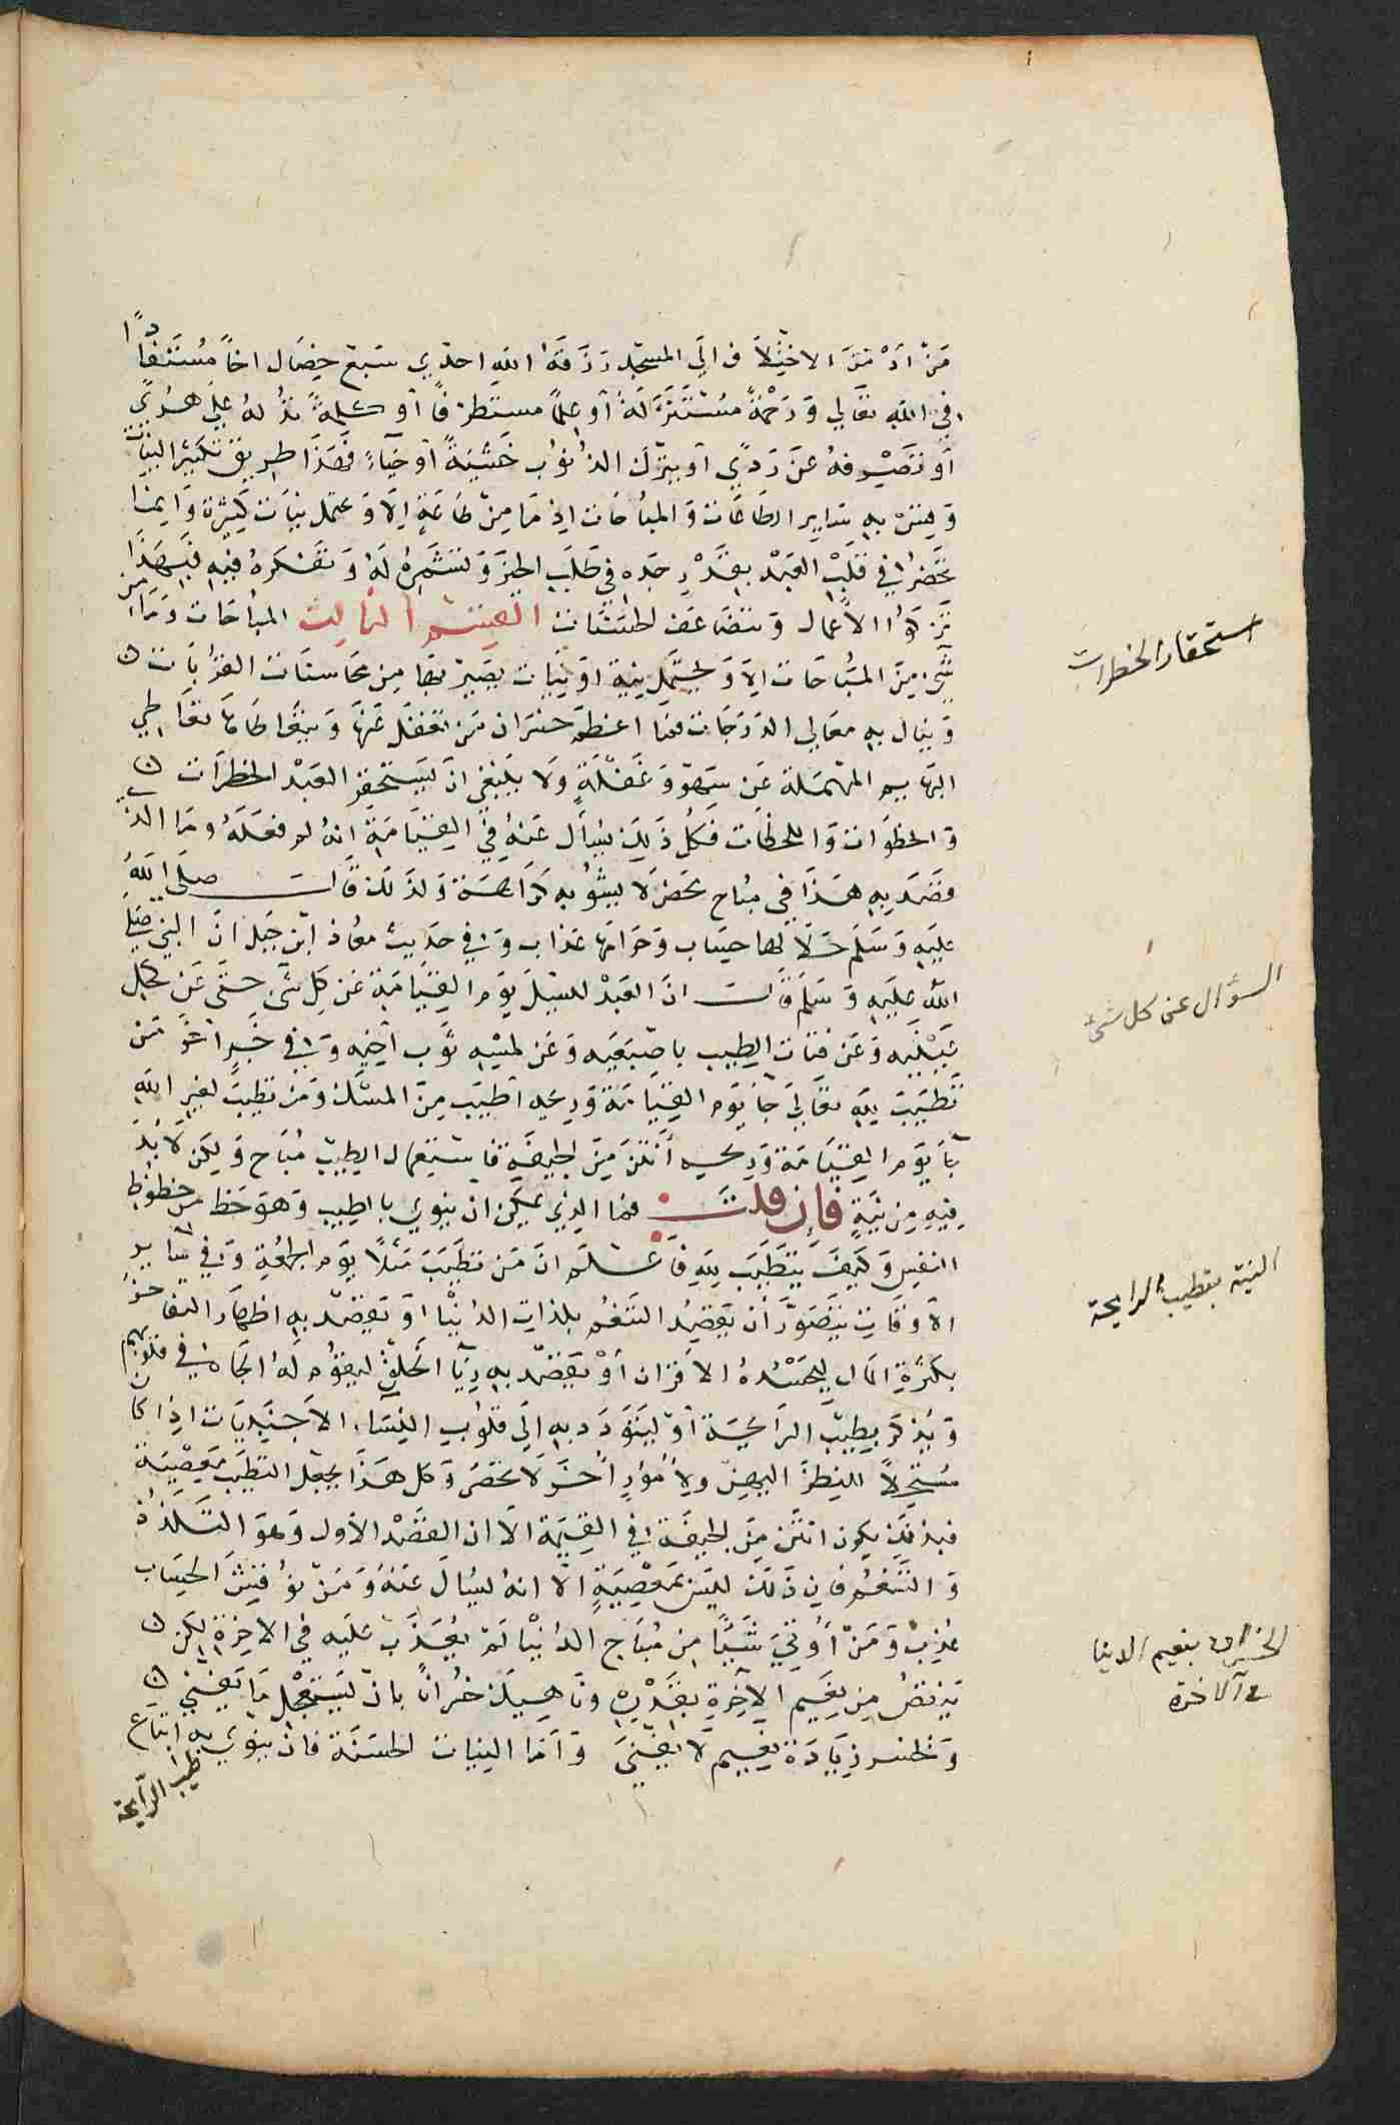 من ادمن الاختلاف الى المسجد رزقه الله احدى سبع خصال اخا مستفادا
في الله تعالى ورحمة مستنزلة أو علما مستطرفا أو كلمة تدله على هدى
أو تصرفه عن ردى أو يترك الذنوب خشية أو حياء فهذا طريق تكثير النيات
وقس به سائر الطاعات والمباحات اذ ما من طاعة الا وتحتمل نيات كثيرة وانما
تحضر في قلب العبد بقدر جده في طلب الخير وتشمره له وتفكره فيه فبهذا
تزكوا الأعمال وتتضاعف الحسنات القسم الثالث المباحات وما من
شئ من المباحات الا ويحتمل نية او نيات يصير بها من محاسنات القربات
وينال به معالي الدرجات فما اعظم خسران من يغفل عنها ويتعاطاها تعاطي
البهايم المهملة عن سهو وغفلة ولا ينبغي ان يستحقر العبد الخطرات
والخطوات واللحظات فكل ذلك يسأل عنه في القيامة انه لم فعله وما الذي
قصد به هذا في مباح محض لا يشوبه كراهة ولذلك قال صلى الله
عليه وسلم حلالها حساب وحرامها عذاب وفي حديث معاذ ابن جبل ان النبي صلى
الله عليه وسلم قال ان العبد ليسئل يوم القيامة عن كل شئ حتى عن كحل
عينيه وعن فتات الطيب باصبعيه وعن لمسه ثوب أخيه وفي خبر آخر من
تطيب لله تعالى جا يوم القيامة وريحه أطيب من المسك ومن تطيب لغير الله
جا يوم القيامة وريحه أنتن من الجيفة فاستعمال الطيب مباح ولكن لا بد
فيه من نية فإن قلت فما الذي يمكن ان ينوي بالطيب وهو حظ من حظوظ
النفس وكيف يتطيب لله فاعلم ان من تطيب مثلا يوم الجمعة وفي ساير
الأوقات يتصور أن يقصد التنعم بلذات الدنيا او يقصد به اظهار التفاخر
بكثرة المال ليحسده الأقران أو يقصد به ريا الخلق ليقوم له الجاه في قلوبهم
ويذكر بطيب الرايحة أو ليتودد به إلى قلوب النساء الأجنبيات اذا كان
مستحلا للنظر اليهن ولأمور أخر لا تحصر وكل هذا يجعل التطيب معصية
فبذلك يكون انتن من الجيفة في القيمة الا ان القصد الأول وهو التلذذ
والتنعم فان ذلك ليس بمعصية الا انه يسال عنه ومن نوقش الحساب
عذب ومن أوتي شيئا من مباح الدنيا لم يعذب عليه في الاخرة لكن
ينقص من نعيم الآخرة بقدره وناهيك خسرانا بان يستعجل ما يفنى
ويخسر زيادة نعيم لا يفنى وأما النيات الحسنة فان ينوي به اتباع
طيب الرايحة
استحقار الخطرات
السؤال عن كل شئ
النية بتطيب الرايحة
الخسران بنعيم الدنيا
في الاخرة